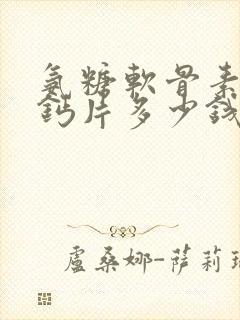 氨糖軟骨素
鈣片多少錢
盧桑娜-薩莉瑞